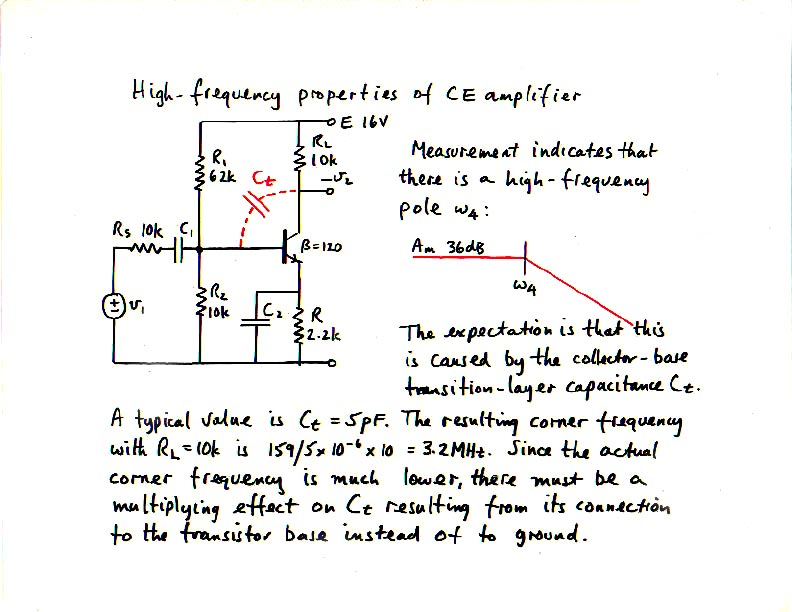 High-frequency properties of CE amplifier
E 16V
R₁
62k
Cₜ
R_L
10k
-v₂
Rₛ 10k
C₁
β=120
v₁
R₂
10k
C₂
R
2.2k
Measurement indicates that
there is a high-frequency
pole ω₄:
Aₘ 36dB
ω₄
The expectation is that this
is caused by the collector-base
transition-layer capacitance Cₜ.
A typical value is Cₜ = 5pF. The resulting corner frequency
with R_L = 10k is 159/5x10⁻⁶x10 = 3.2MHz. Since the actual
corner frequency is much lower, there must be a
multiplying effect on Cₜ resulting from its connection
to the transistor base instead of to ground.